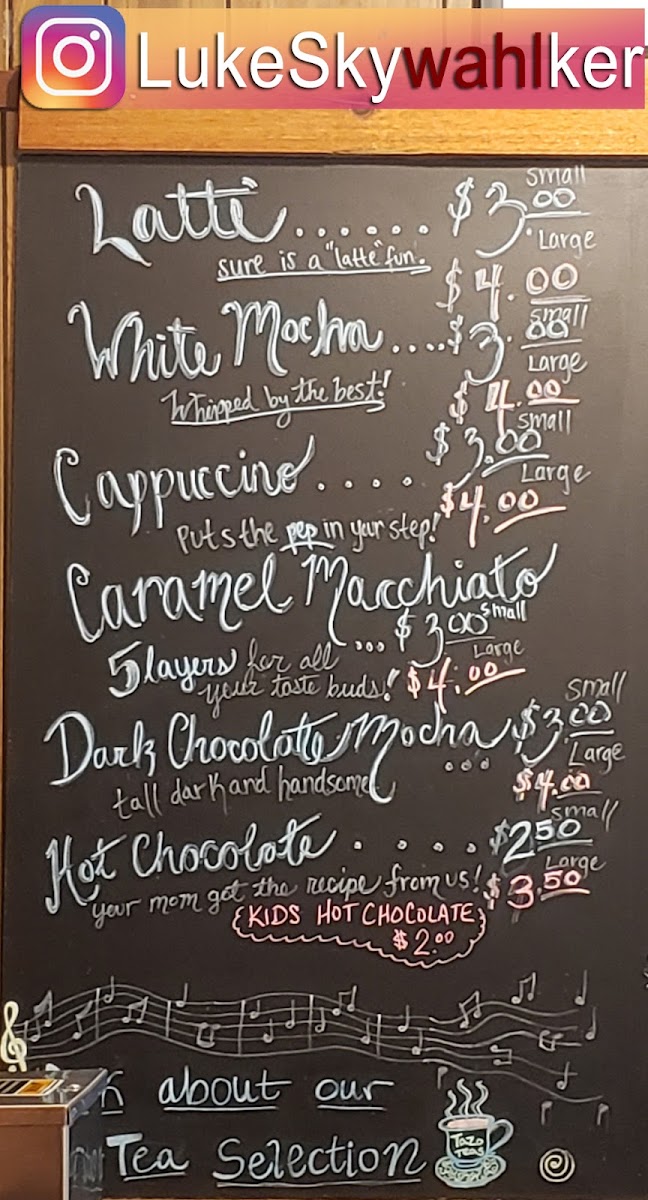 LukeSkywahlker
Small
Latte ...... $3.00
sure is a "latte" fun.
Large
$4.00
Small
White Mocha ....$3.00
Whipped by the best!
Large
$4.00
Small
Cappuccino .... $3.00
Large
$4.00
Puts the pep in your step!
Caramel Macchiato
... $3.00 small
5 layers for all
your taste buds!
Large
$4.00
Small
Dark Chocolate Mocha ... $3.00
tall dark and handsome
Large
$4.00
Small
Hot Chocolate . . . . . $2.50
your mom got the recipe from us!
Large
$3.50
KIDS HOT CHOCOLATE
$2.00
about our
Tea Selection
Tazo
Teas